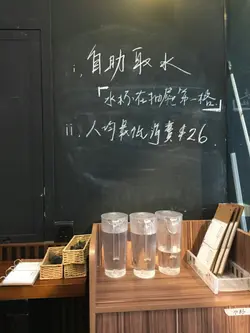 i. 自助取水
「水杯在抽屜第一格」
ii. 人均最低消費$26.